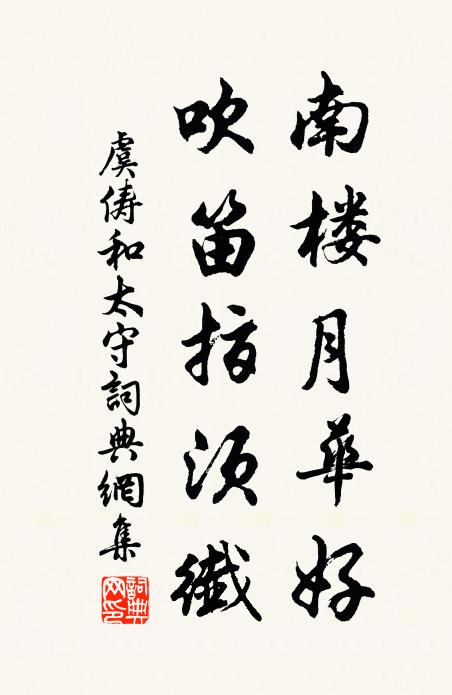 南楼月華好
吹笛指須纖
虞俦和太守詞典網集
詞典網印